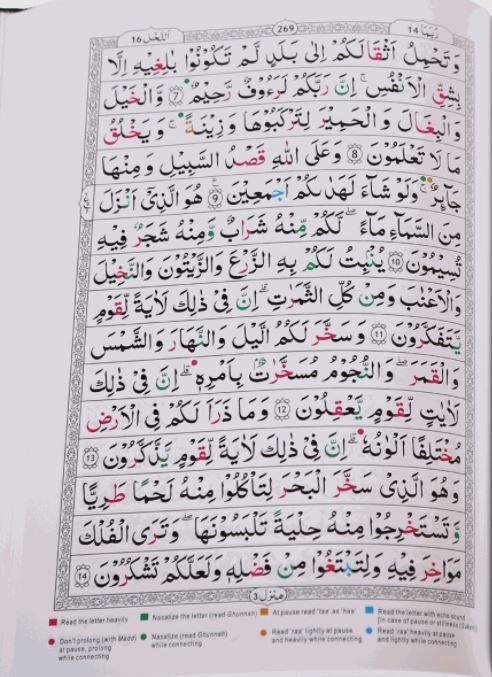 النحل 16
269
ربما 14
وَتَحْمِلُ اَثْقَالَكُمْ اِلٰى بَلَدٍ لَّمْ تَكُوْنُوْا بٰلِغِيْهِ اِلَّا
بِشِقِّ الْاَنْفُسِ ؕ اِنَّ رَبَّكُمْ لَرَءُوْفٌ رَّحِيْمٌ ۙ 7 وَّالْخَيْلَ
وَالْبِغَالَ وَالْحَمِيْرَ لِتَرْكَبُوْهَا وَزِيْنَةً ؕ وَيَخْلُقُ
مَا لَا تَعْلَمُوْنَ 8 وَعَلَى اللّٰهِ قَصْدُ السَّبِيْلِ وَمِنْهَا
جَآئِرٌ ؕ وَلَوْ شَآءَ لَهَدٰىكُمْ اَجْمَعِيْنَ 9 هُوَ الَّذِىْۤ اَنْزَلَ
مِنَ السَّمَآءِ مَآءً لَّكُمْ مِّنْهُ شَرَابٌ وَّمِنْهُ شَجَرٌ فِيْهِ
تُسِيْمُوْنَ 10 يُنْۢبِتُ لَكُمْ بِهِ الزَّرْعَ وَالزَّيْتُوْنَ وَالنَّخِيْلَ
وَالْاَعْنَابَ وَمِنْ كُلِّ الثَّمَرٰتِ ؕ اِنَّ فِىْ ذٰلِكَ لَاٰيَةً لِّقَوْمٍ
يَّتَفَكَّرُوْنَ 11 وَسَخَّرَ لَكُمُ الَّيْلَ وَالنَّهَارَ وَالشَّمْسَ
وَالْقَمَرَ ؕ وَالنُّجُوْمُ مُسَخَّرٰتٌۢ بِاَمْرِهٖ ؕ اِنَّ فِىْ ذٰلِكَ
لَاٰيٰتٍ لِّقَوْمٍ يَّعْقِلُوْنَ 12 وَمَا ذَرَاَ لَكُمْ فِى الْاَرْضِ
مُخْتَلِفًا اَلْوَانُهٗ ؕ اِنَّ فِىْ ذٰلِكَ لَاٰيَةً لِّقَوْمٍ يَّذَّكَّرُوْنَ 13
وَهُوَ الَّذِىْ سَخَّرَ الْبَحْرَ لِتَاْكُلُوْا مِنْهُ لَحْمًا طَرِيًّا
وَّتَسْتَخْرِجُوْا مِنْهُ حِلْيَةً تَلْبَسُوْنَهَا ۚ وَتَرَى الْفُلْكَ
مَوَاخِرَ فِيْهِ وَلِتَبْتَغُوْا مِنْ فَضْلِهٖ وَلَعَلَّكُمْ تَشْكُرُوْنَ 14
منزل 3
Read the letter heavily
Nasalize the letter (read Ghunnah)
At pause read 'taa' as 'haa'
Read the letter with echo sound
[in case of pause or stillness (Sukun)]
Don't prolong (with Madd)
at pause, prolong
while connecting
Nasalize (read Ghunnah)
while connecting
Read 'raa' lightly at pause
and heavily while connecting
Read 'raa' heavily at pause
and lightly while connecting